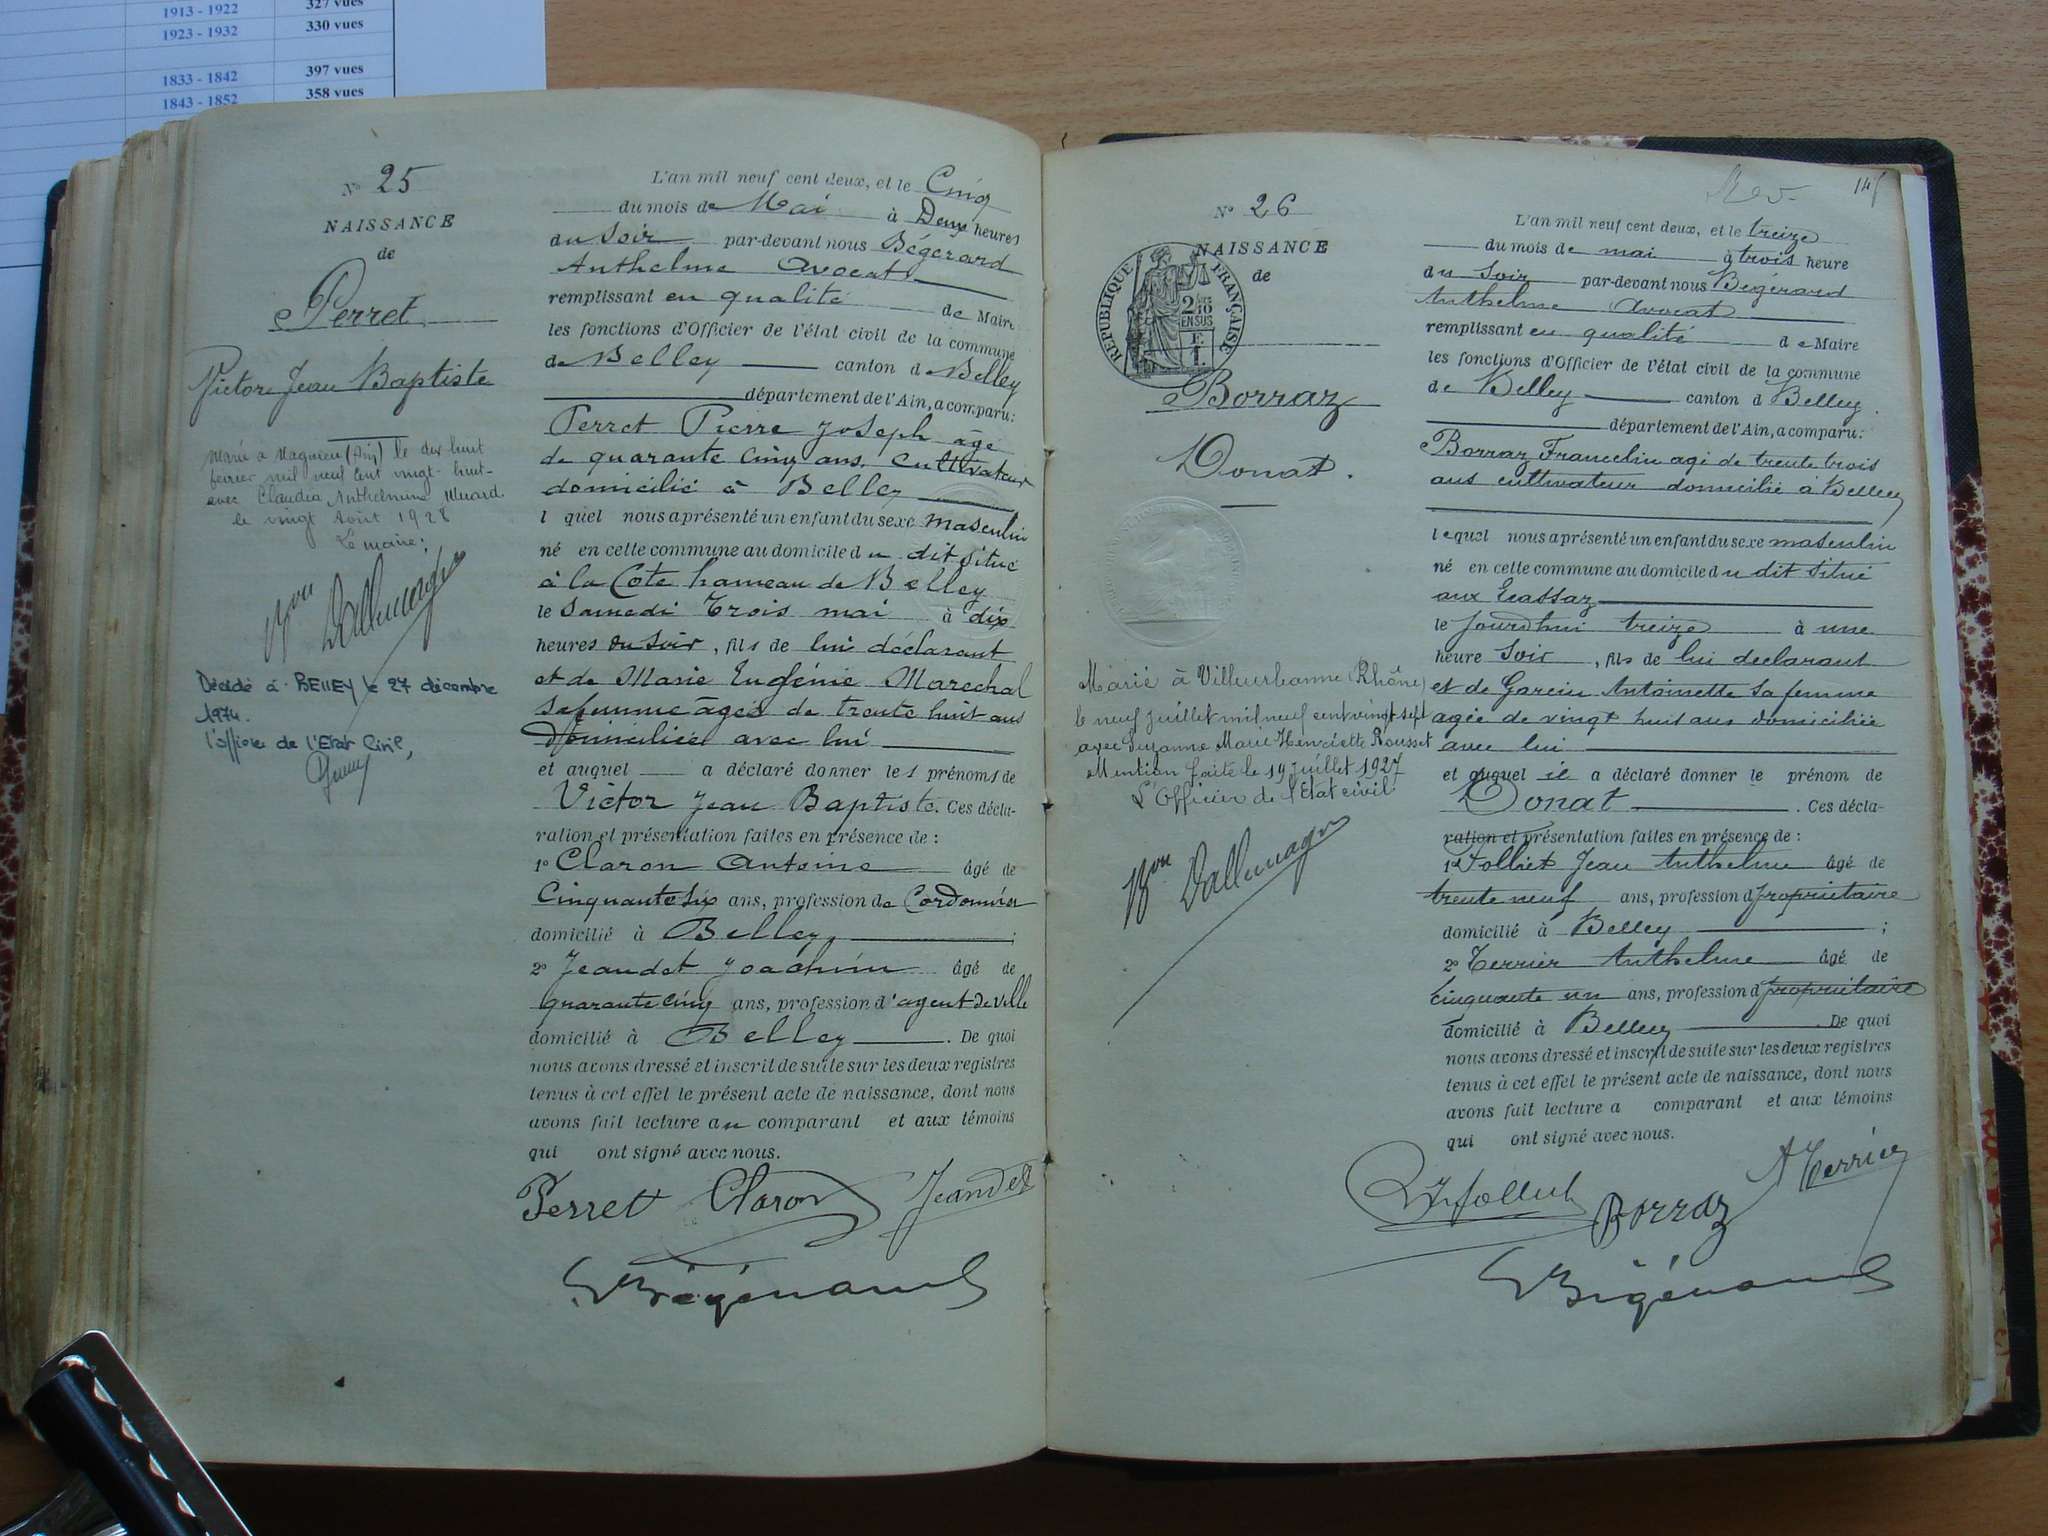 1913 - 1922 327 vues
1923 - 1932 330 vues
1833 - 1842 397 vues
1843 - 1852 358 vues
N° 25
NAISSANCE
de
Perret
Victor Jean Baptiste
Marié à Magnieu (Ain) le dix huit
février mil neuf cent vingt-huit
avec Claudia Anthelmine Murard.
le vingt Août 1928
Le maire;
Bon Dallemagne
Décédé à BELLEY le 27 décembre
1974.
l'officier de l'Etat Civil,
L'an mil neuf cent deux, et le Cinq
du mois de Mai à Deux heures
du Soir par-devant nous Bégérard
Anthelme Avocat
remplissant en qualité de Maire
les fonctions d'Officier de l'état civil de la commune
de Belley canton de Belley
département de l'Ain, a comparu:
Perret Pierre Joseph âgé
de quarante cinq ans, cultivateur
domicilié à Belley
lequel nous a présenté un enfant du sexe masculin
né en cette commune au domicile du dit situé
à la Cote hameau de Belley
le Samedi Trois mai à dix
heures du Soir, fils de lui déclarant
et de Marie Eugénie Marechal
sa femme âgée de trente huit ans
Domiciliée avec lui
et auquel a déclaré donner les prénoms de
Victor Jean Baptiste. Ces décla-
ration et présentation faites en présence de :
1° Claron Antoine âgé de
Cinquante six ans, profession de Cordonnier
domicilié à Belley ;
2° Jeandet Joachim âgé de
quarante cinq ans, profession d'agent de ville
domicilié à Belley. De quoi
nous avons dressé et inscrit de suite sur les deux registres
tenus à cet effet le présent acte de naissance, dont nous
avons fait lecture au comparant et aux témoins
qui ont signé avec nous.
Perret Claron Jeandet
Bégérard
Rev. 145
N° 26
NAISSANCE
de
RÉPUBLIQUE FRANÇAISE
2/10
EN SUS
Borraz
Donat.
Marié à Villeurbanne (Rhône)
le neuf juillet mil neuf cent vingt sept
avec Suzanne Marie Henriette Rousset
Mention faite le 19 juillet 1927
L'Officier de l'Etat civil
Bon Dallemagne
L'an mil neuf cent deux, et le treize
du mois de mai à trois heure
du Soir par-devant nous Bégérard
Anthelme Avocat
remplissant en qualité de Maire
les fonctions d'Officier de l'état civil de la commune
de Belley canton d Belley.
département de l'Ain, a comparu:
Borraz Francelin agé de trente trois
ans cultivateur domicilié à Belley
lequel nous a présenté un enfant du sexe masculin
né en cette commune au domicile du dit situé
aux Ecassaz
le jourdhui treize à une
heure Soir, fils de lui declarant
et de Garcin Antoinette sa femme
agée de vingt huit ans domiciliée
avec lui
et auquel il a déclaré donner le prénom de
Donat. Ces décla-
ration et présentation faites en présence de :
1° Folliet Jean Anthelme âgé de
trente neuf ans, profession d propriétaire
domicilié à Belley ;
2° Terrier Anthelme âgé de
cinquante un ans, profession d propriétaire
domicilié à Belley. De quoi
nous avons dressé et inscrit de suite sur les deux registres
tenus à cet effet le présent acte de naissance, dont nous
avons fait lecture a comparant et aux témoins
qui ont signé avec nous.
Borraz A Terrier
Bégérard